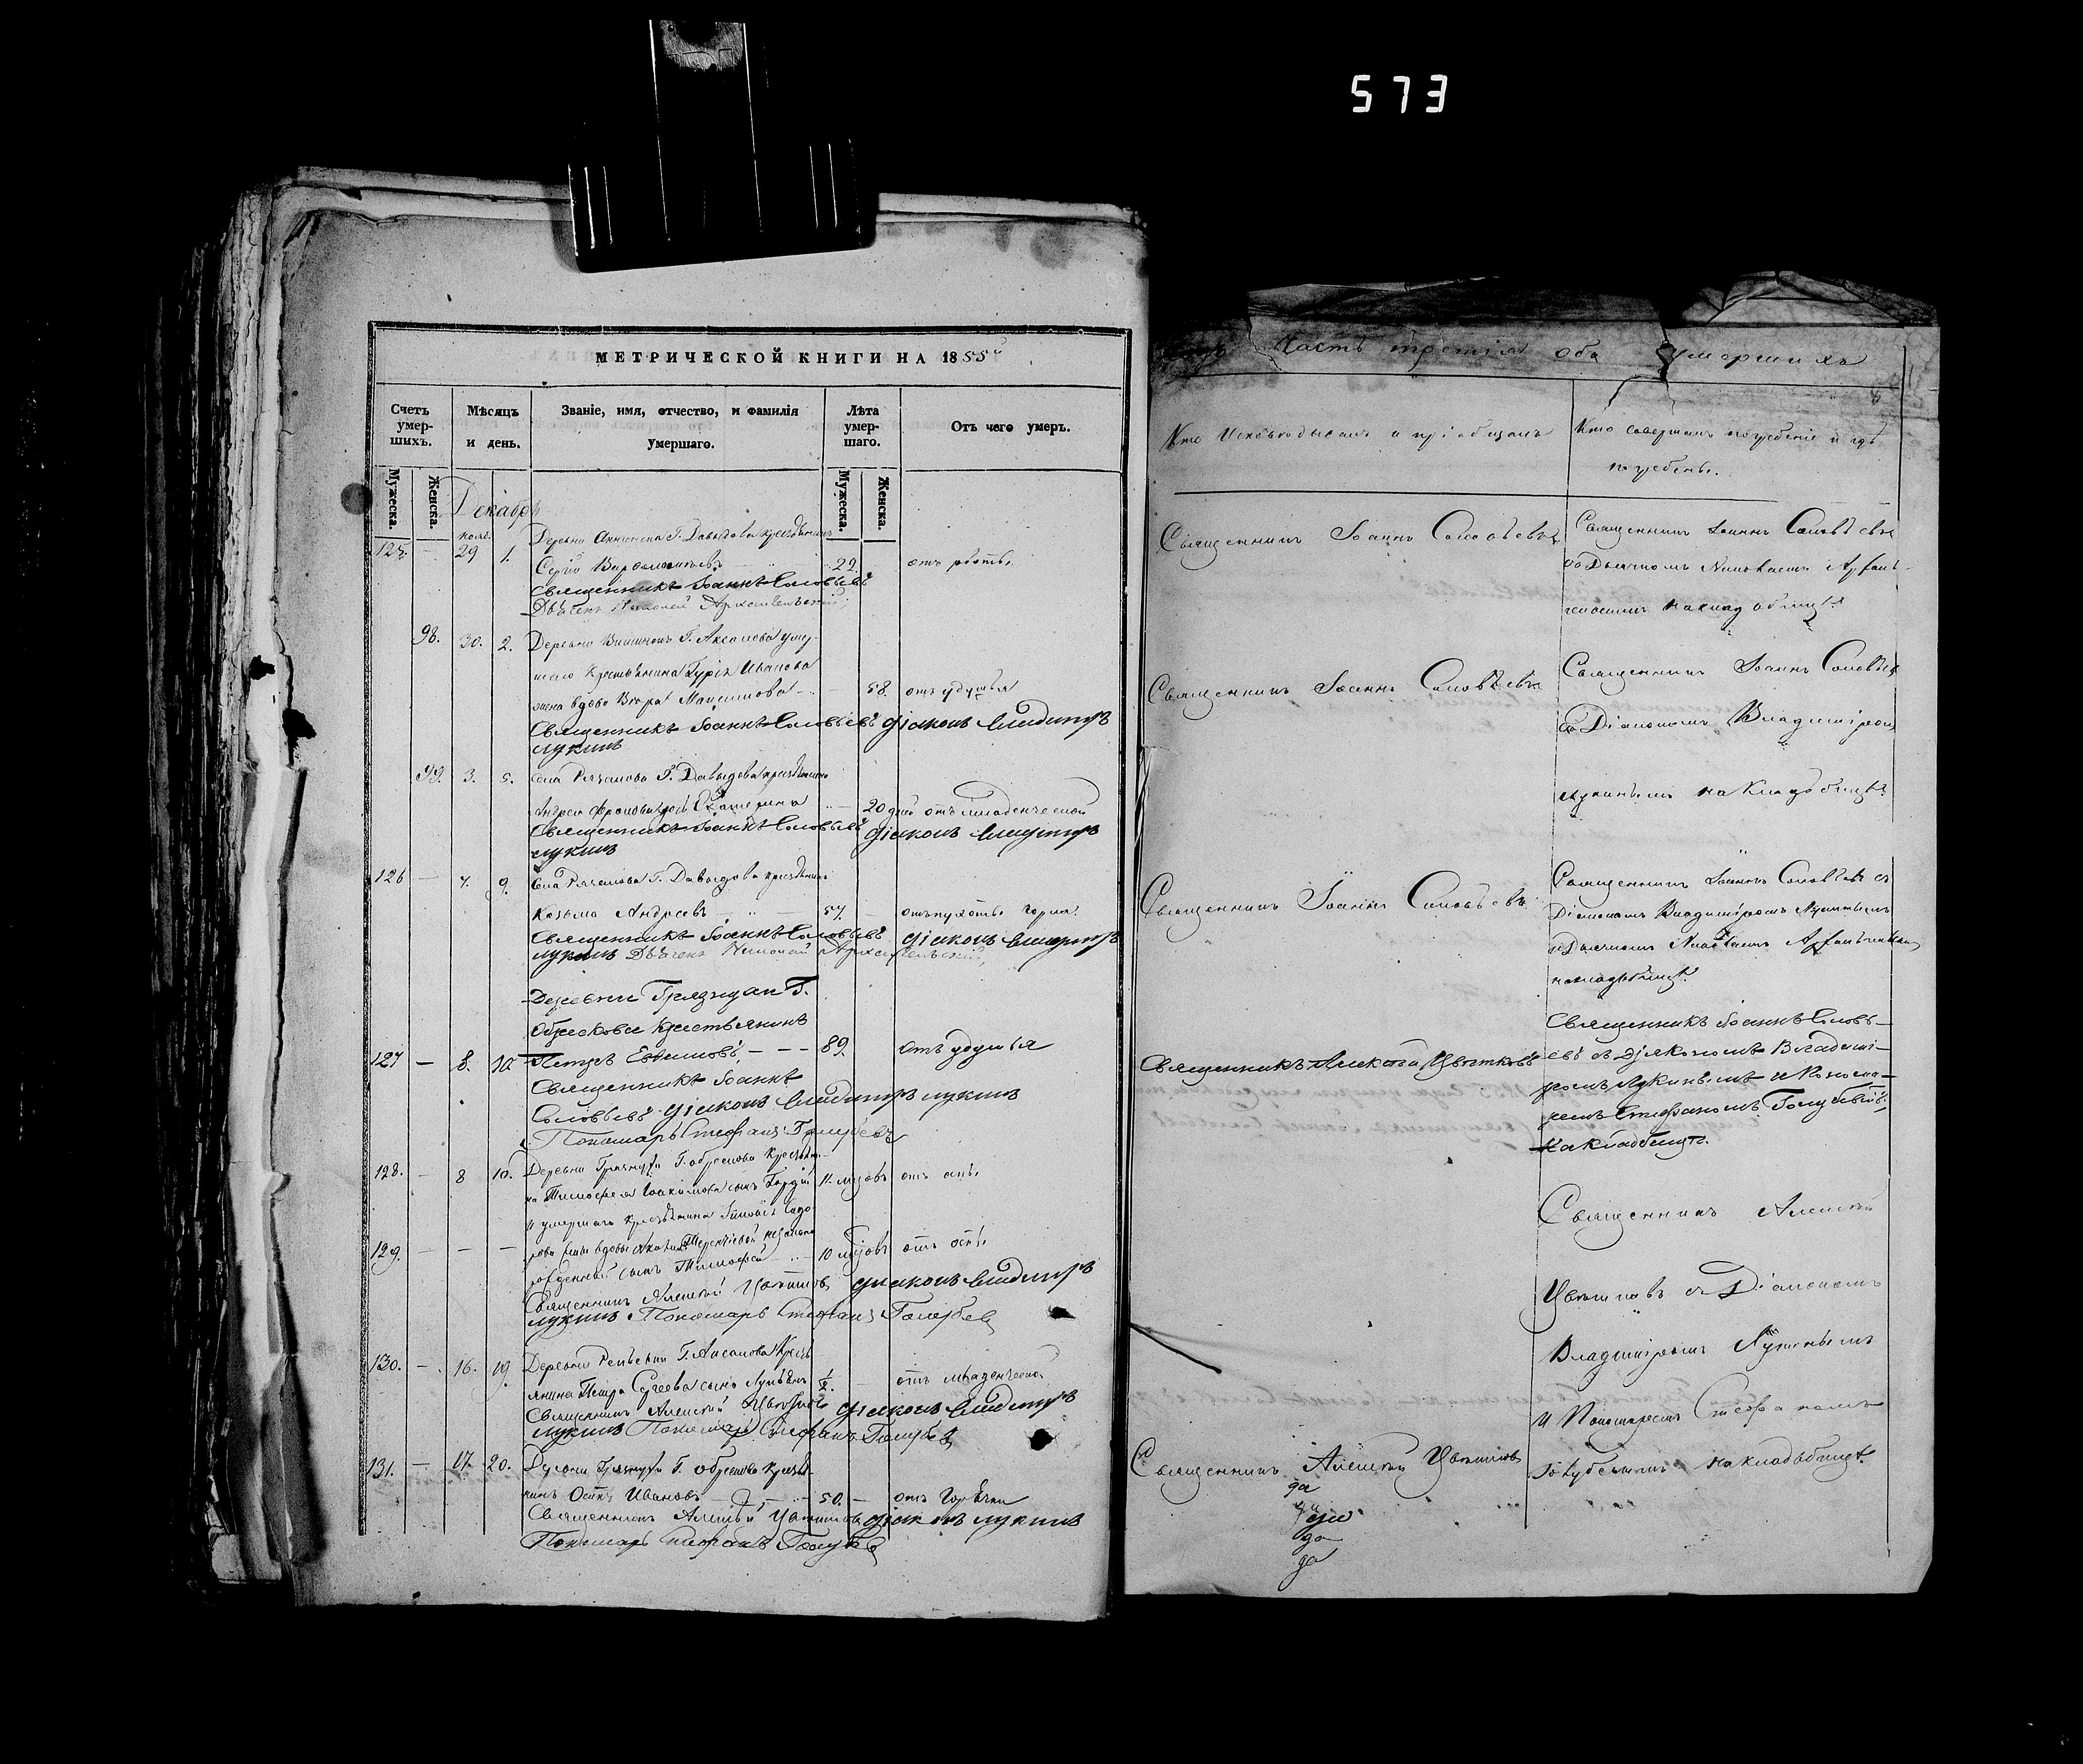 573
МЕТРИЧЕСКОЙ КНИГИ НА 1855й
Часть третія объ умершихъ
Счетъ умер-шихъ.
Мѣсяцъ и день.
Званіе, имя, отчество, и фамилія умершаго.
Лѣта умер-шаго.
Отъ чего умеръ.
Мужеска.
Женска.
Мужеска.
Женска.
Кто исповѣдывалъ и пріобщалъ
Кто совершалъ погребеніе и гдѣ
погребены.
Декабрь
нояб.
125. — 29 1. Деревни Г. Давыдова крестьянинъ
Сергій 29.
Священникъ Іоаннъ Соловьевъ
Дьячекъ Николай Архангельскій
Священникъ Іоаннъ Соловьевъ
Священникъ Іоаннъ Соловьевъ
съ Дьячкомъ Николаемъ Архан-
гельскимъ на кладбищѣ
98. 30. 2. Деревни Г. Аксакова умер-
шаго крестьянина Гурія Иванова
жена вдова Максимова 58. отъ удушья
Священникъ Іоаннъ Соловьевъ діаконъ Владиміръ
Лукинъ
Священникъ Іоаннъ Соловьевъ
Священникъ Іоаннъ Соловьевъ
съ Діакономъ Владиміромъ
Лукинымъ на кладбищѣ
99. 3. 5. Села Рязанова Г. Давыдова крестьянина
Андрея дочь Екатерина 20 дней отъ младенческой
Священникъ Іоаннъ Соловьевъ діаконъ Владиміръ
Лукинъ
126 — 7. 9. Села Рязанова Г. Давыдова крестьянинъ
Козьма Андреевъ 57. — горла
Священникъ Іоаннъ Соловьевъ діаконъ Владиміръ
Лукинъ Дьячекъ Николай Архангельскій
Священникъ Іоаннъ Соловьевъ
Священникъ Іоаннъ Соловьевъ съ
Діакономъ Владиміромъ Лукинымъ
и Дьячкомъ Николаемъ Архангельскимъ
на кладбищѣ
Деревни Грязнухи Г.
Обрескова крестьянинъ
127 — 8. 10. Петръ Евѳимовъ — — — 89. отъ удушья
Священникъ Іоаннъ
Соловьевъ діаконъ Владиміръ Лукинъ
Пономарь Стефанъ Голубевъ
Священникъ Алексѣй Цвѣтковъ
Священникъ Іоаннъ Соловь-
евъ съ Діякономъ Владимі-
ромъ Лукинымъ и Понома-
ремъ Стефаномъ Голубевымъ
на кладбищѣ.
128. — 8 10. Деревни Грязнухи Г. Обрескова крестьяни-
на Тимофея сынъ Гордій 11. мѣсяцъ отъ оспы
и умершаго крестьянина Сидо-
129. — — — рова жены вдовы Терентіевой незаконно
рожденный сынъ Тимофей 10 мѣсяцъ отъ оспы
Священникъ Алексѣй Цвѣтковъ діаконъ Владиміръ
Лукинъ Пономарь Стефанъ Голубевъ
Священникъ Алексѣй
Цвѣтковъ съ Діакономъ
Владиміромъ Лукинымъ
и Пономаремъ Стефаномъ
Голубевымъ на кладбищѣ
130. — 16. 19. Деревни Г. Аксакова крес
янина Петра Сергеева сынъ ½. — отъ младенческой
Священникъ Алексѣй Цвѣтковъ діаконъ Владиміръ
Лукинъ Пономарь Стефанъ Голубевъ
131. — 17. 20. Деревни Грязнухи Г. Обрескова крестья-
нинъ Осипъ Ивановъ 50. — отъ горячки
Священникъ Алексѣй Цвѣтковъ діаконъ Лукинъ
Пономарь Стефанъ Голубевъ
Священникъ Алексѣй Цвѣтковъ